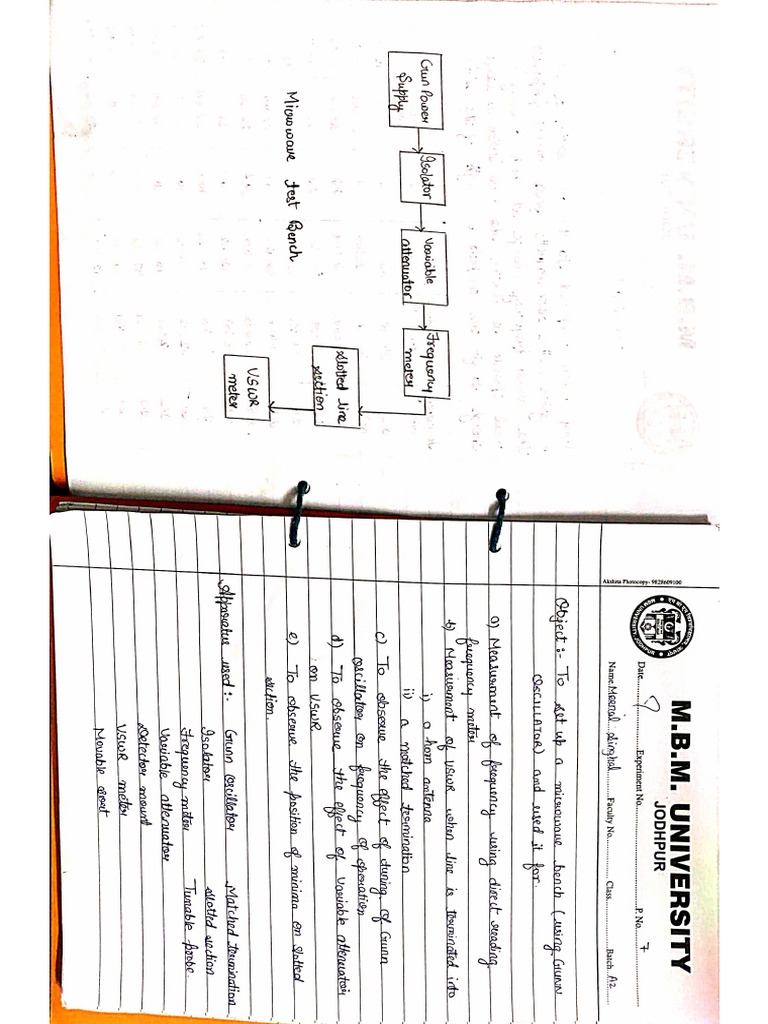 Gun Power
Supply
Isolator
Variable
attenuator
Frequency
meter
Slotted line
section
VSWR
meter
Microwave test Bench
M.B.M. UNIVERSITY
JODHPUR
Date............ Experiment No............ P. No. 7
Name Meenal Singhal Faculty No............ Class............ Batch A2
Akshita Photocopy- 9828609100
Object :- To set up a microwave bench (using GUNN
OSCILLATOR) and used it for.
a) Measurment of frequency using direct reading
frequency meter
b) Measurment of VSWR when line is terminated into
i) a horn antenna
ii) a matched termination
c) To observe the effect of tuning of Gunn
oscillator on frequency of operation
d) To observe the effect of variable attenuator
on VSWR
e) To observe the position of minima on slotted
section.
Apparatus used :- Gunn oscillator Matched termination
Isolator slotted section
Frequency meter Tunable probe.
Variable attenuator
Detector mount
VSWR meter
Movable short